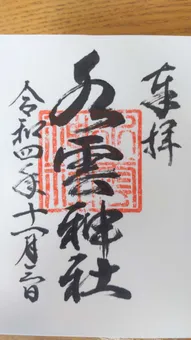 奉拝
八雲神社
令和四年十一月二日